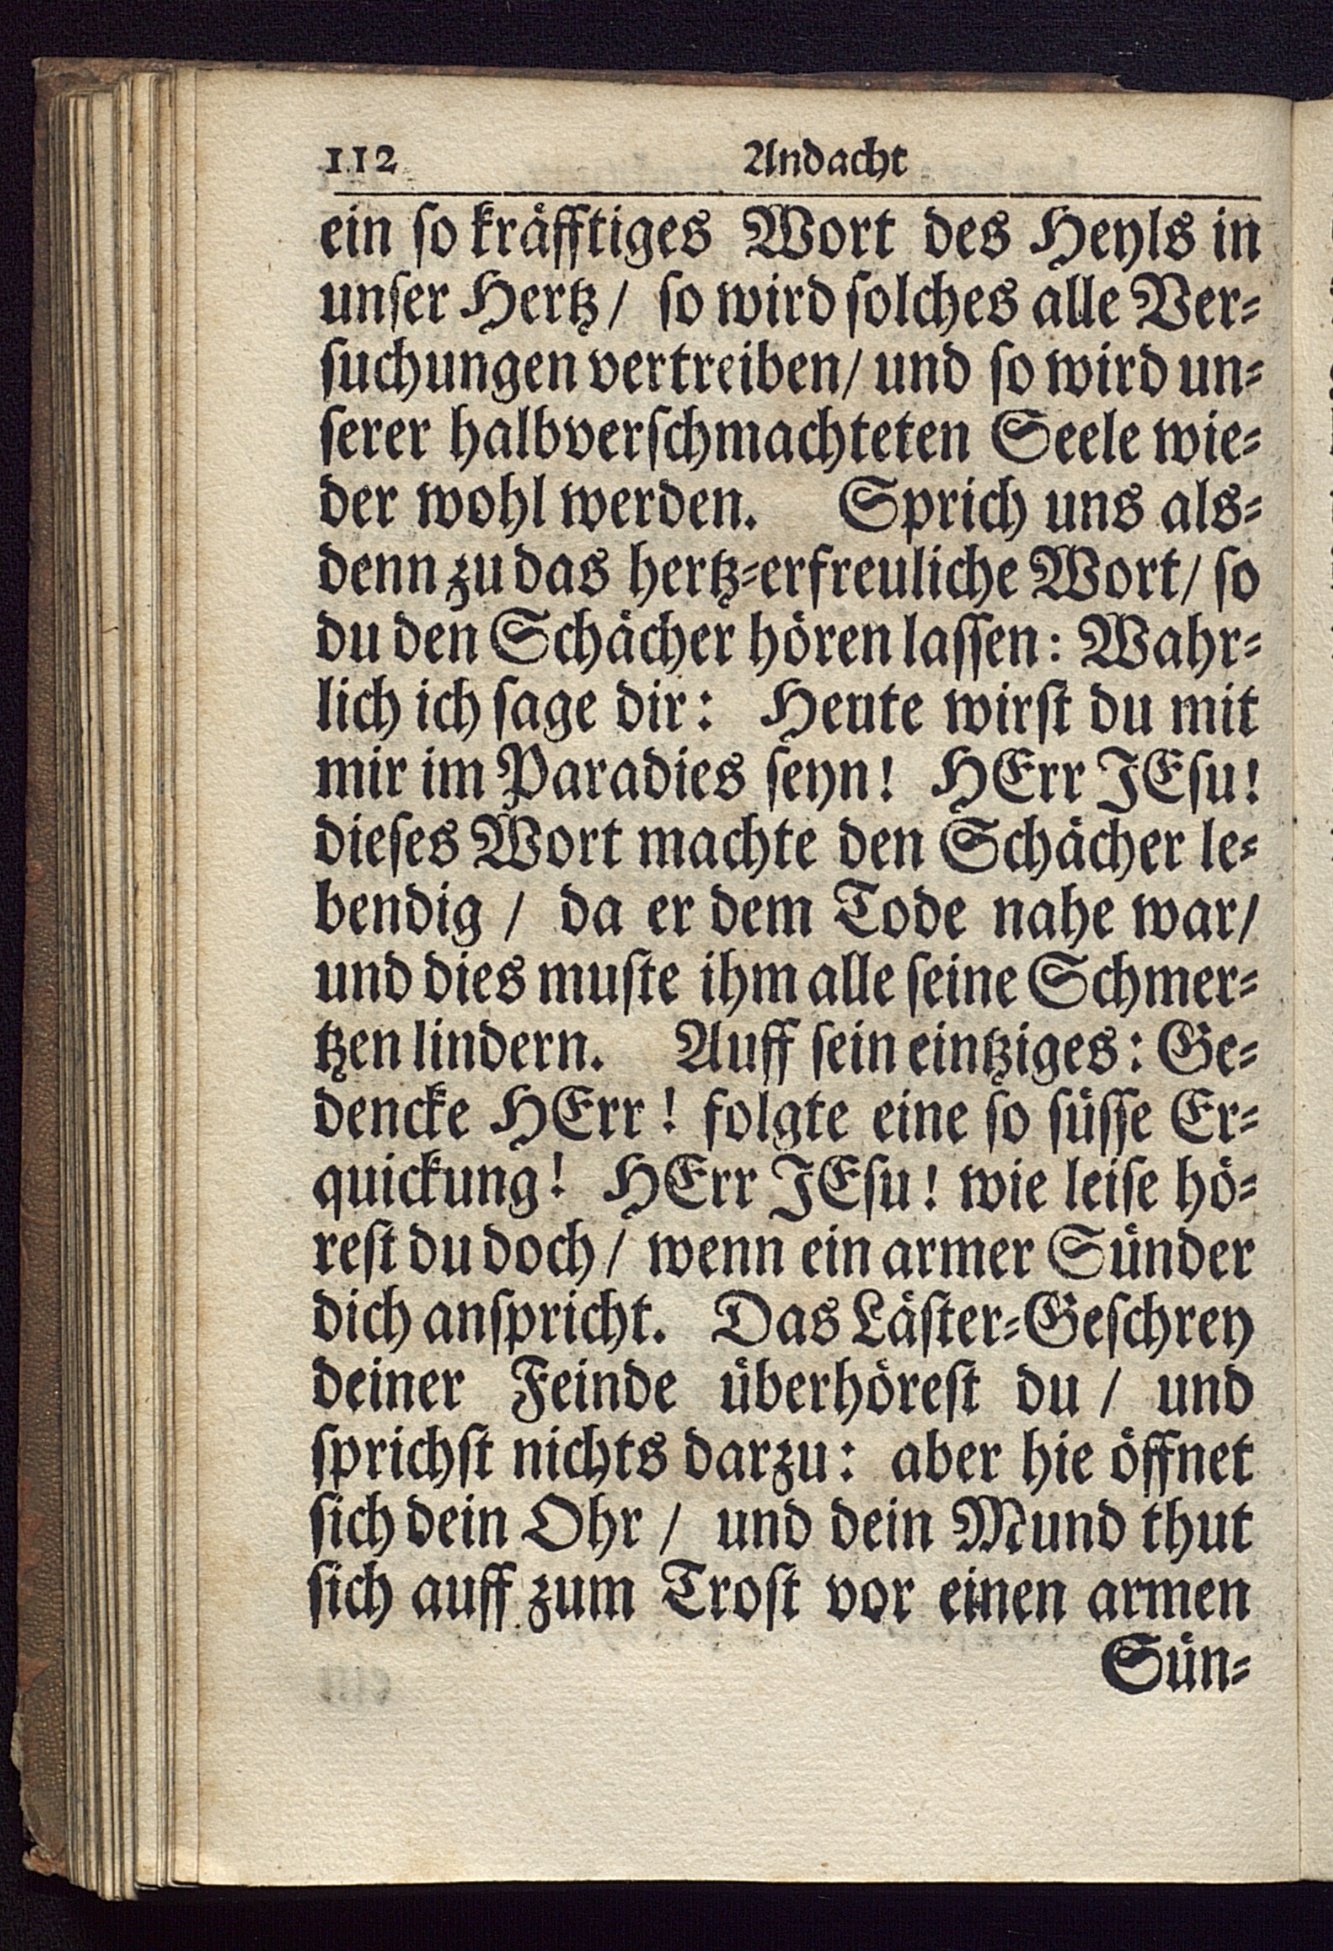 112 Andacht
ein ſo kraͤfftiges Wort des Heyls in
unſer Hertz/ ſo wird ſolches alle Ver⸗
ſuchungen vertreiben/ und ſo wird un⸗
ſerer halbverſchmachteten Seele wie⸗
der wohl werden. Sprich uns als⸗
denn zu das hertz⸗erfreuliche Wort/ ſo
du den Schaͤcher hoͤren laſſen: Wahr⸗
lich ich ſage dir: Heute wirſt du mit
mir im Paradies ſeyn! HErr JEſu!
dieſes Wort machte den Schaͤcher le⸗
bendig / da er dem Tode nahe war/
und dies muſte ihm alle ſeine Schmer⸗
tzen lindern. Auff ſein eintziges: Ge⸗
dencke HErr! folgte eine ſo ſuͤſſe Er⸗
quickung! HErr JEſu! wie leiſe hoͤ⸗
reſt du doch/ wenn ein armer Suͤnder
dich anſpricht. Das Laͤſter⸗Geſchrey
deiner Feinde uͤberhoͤreſt du / und
ſprichſt nichts darzu: aber hie oͤffnet
ſich dein Ohr / und dein Mund thut
ſich auff zum Troſt vor einen armen
Suͤn⸗